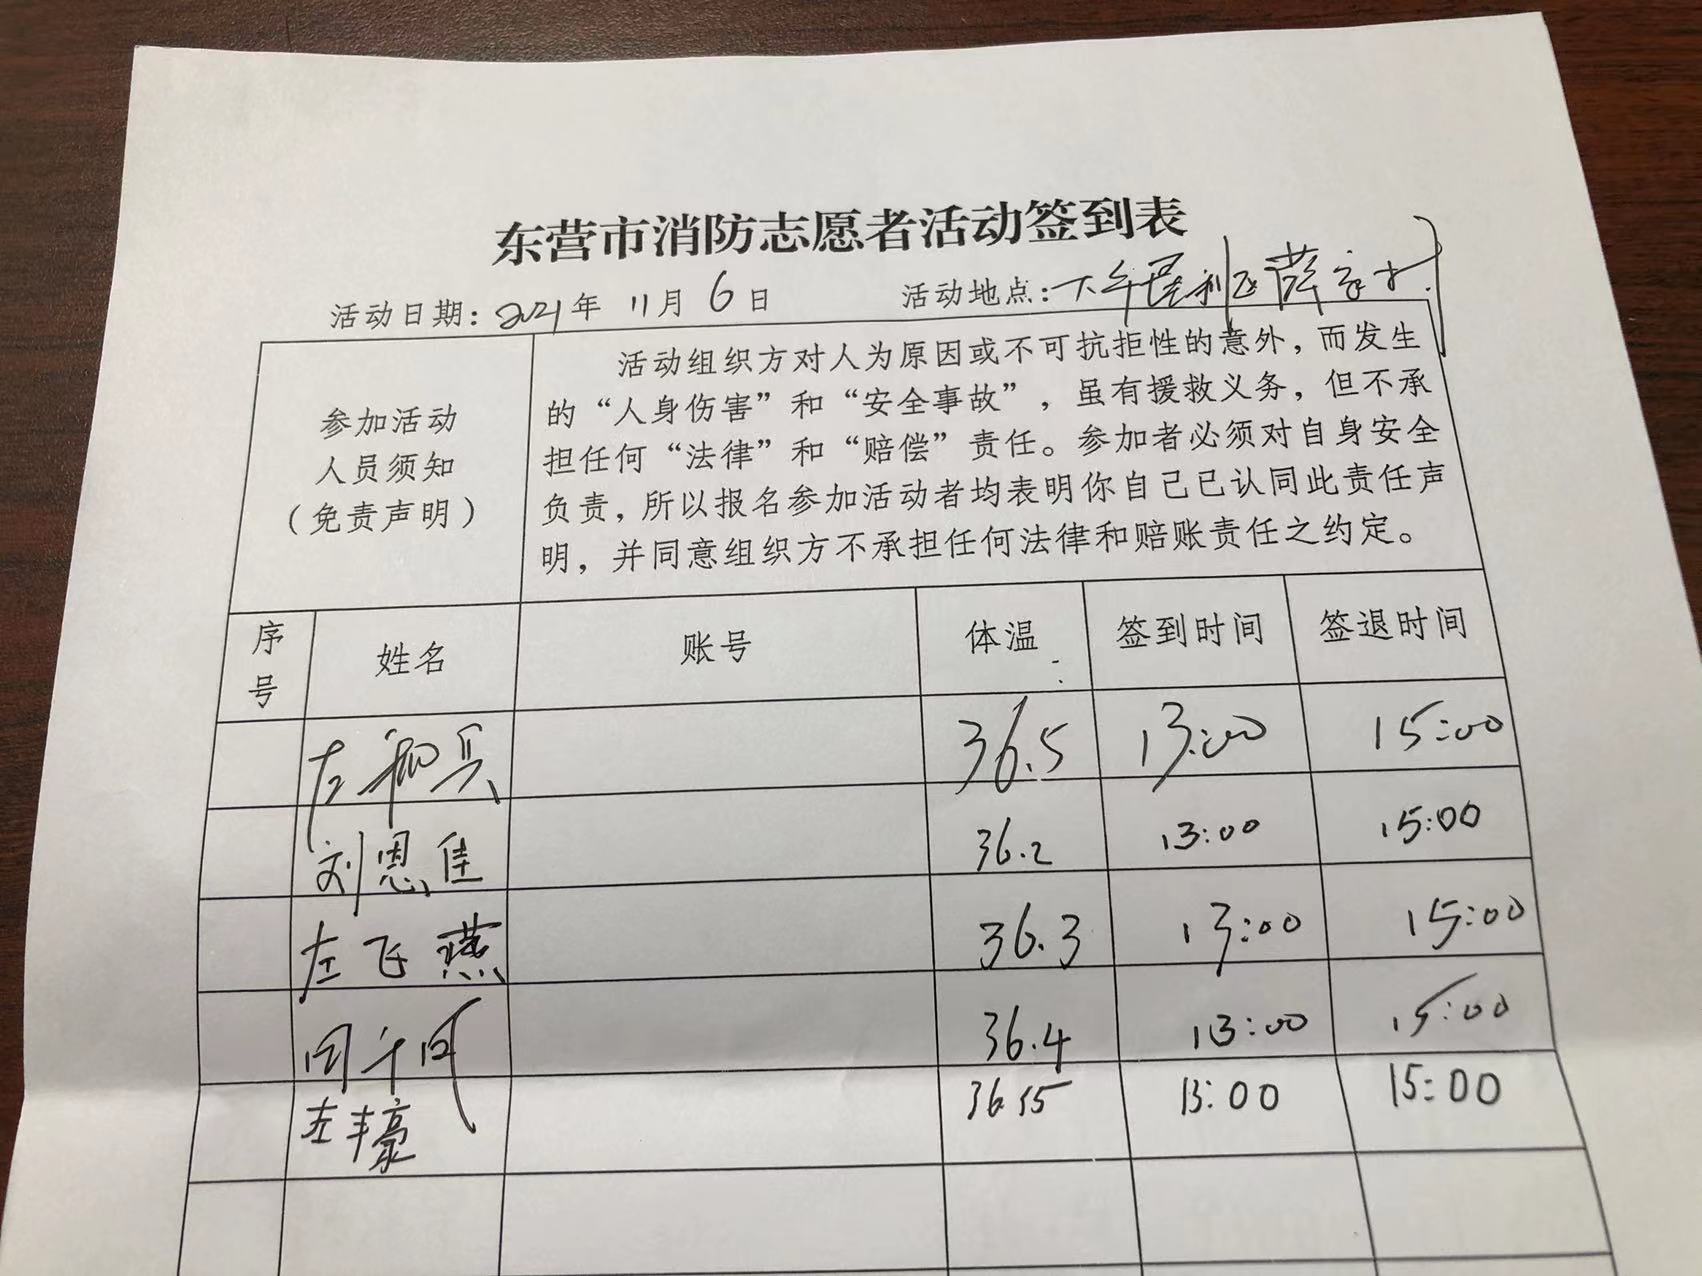 东营市消防志愿者活动签到表
活动日期：2021年 11月 6日 活动地点：下午垦利区薛家村
参加活动
人员须知
（免责声明）
活动组织方对人为原因或不可抗拒性的意外，而发生
的“人身伤害”和“安全事故”，虽有援救义务，但不承
担任何“法律”和“赔偿”责任。参加者必须对自身安全
负责，所以报名参加活动者均表明你自己已认同此责任声
明，并同意组织方不承担任何法律和赔账责任之约定。
序号 姓名 账号 体温 签到时间 签退时间
36.5 13:00 15:00
刘恩佳 36.2 13:00 15:00
左飞燕 36.3 13:00 15:00
36.4 13:00 15:00
左丰豪 36.55 13:00 15:00